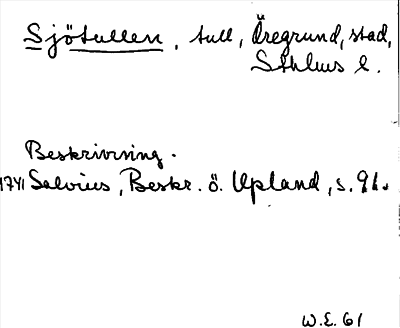 Sjötullen, tull, Öregrund, stad,
Sthlms l.
Beskrivning.
1741 Salvius, Beskr. ö. Upland, s. 91.
W.E. 61